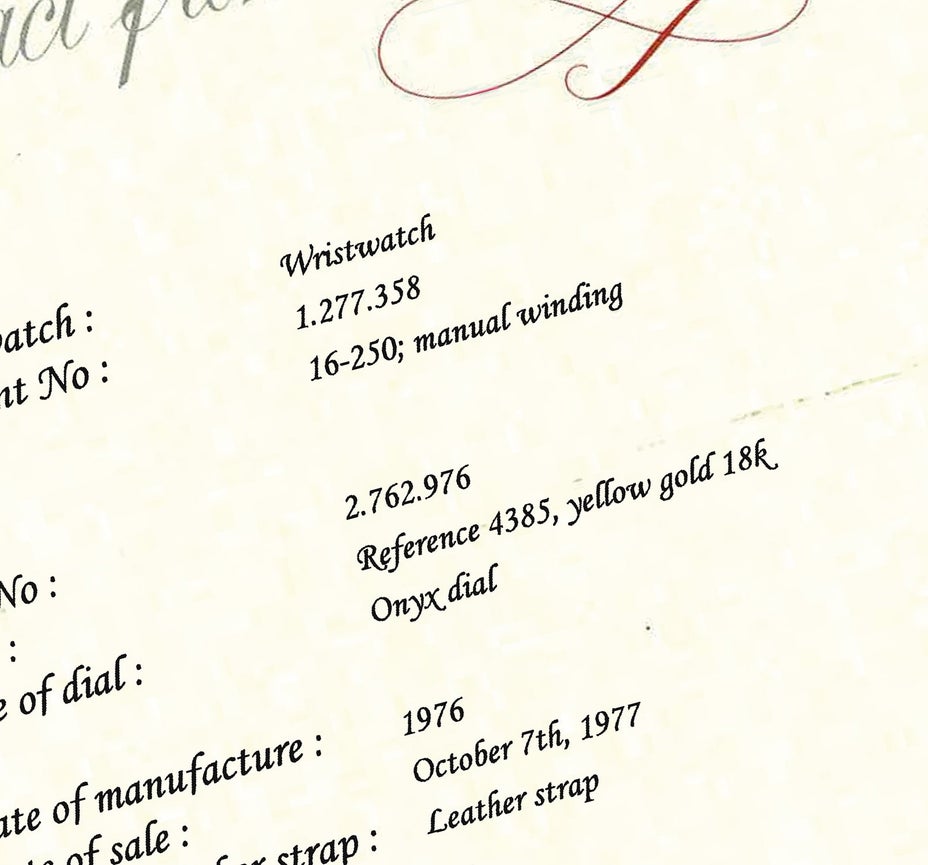 Wristwatch
atch : 1.277.358
nt No : 16-250; manual winding
2.762.976
No : Reference 4385, yellow gold 18k
: Onyx dial
e of dial :
1976
ate of manufacture : October 7th, 1977
of sale : Leather strap
strap :